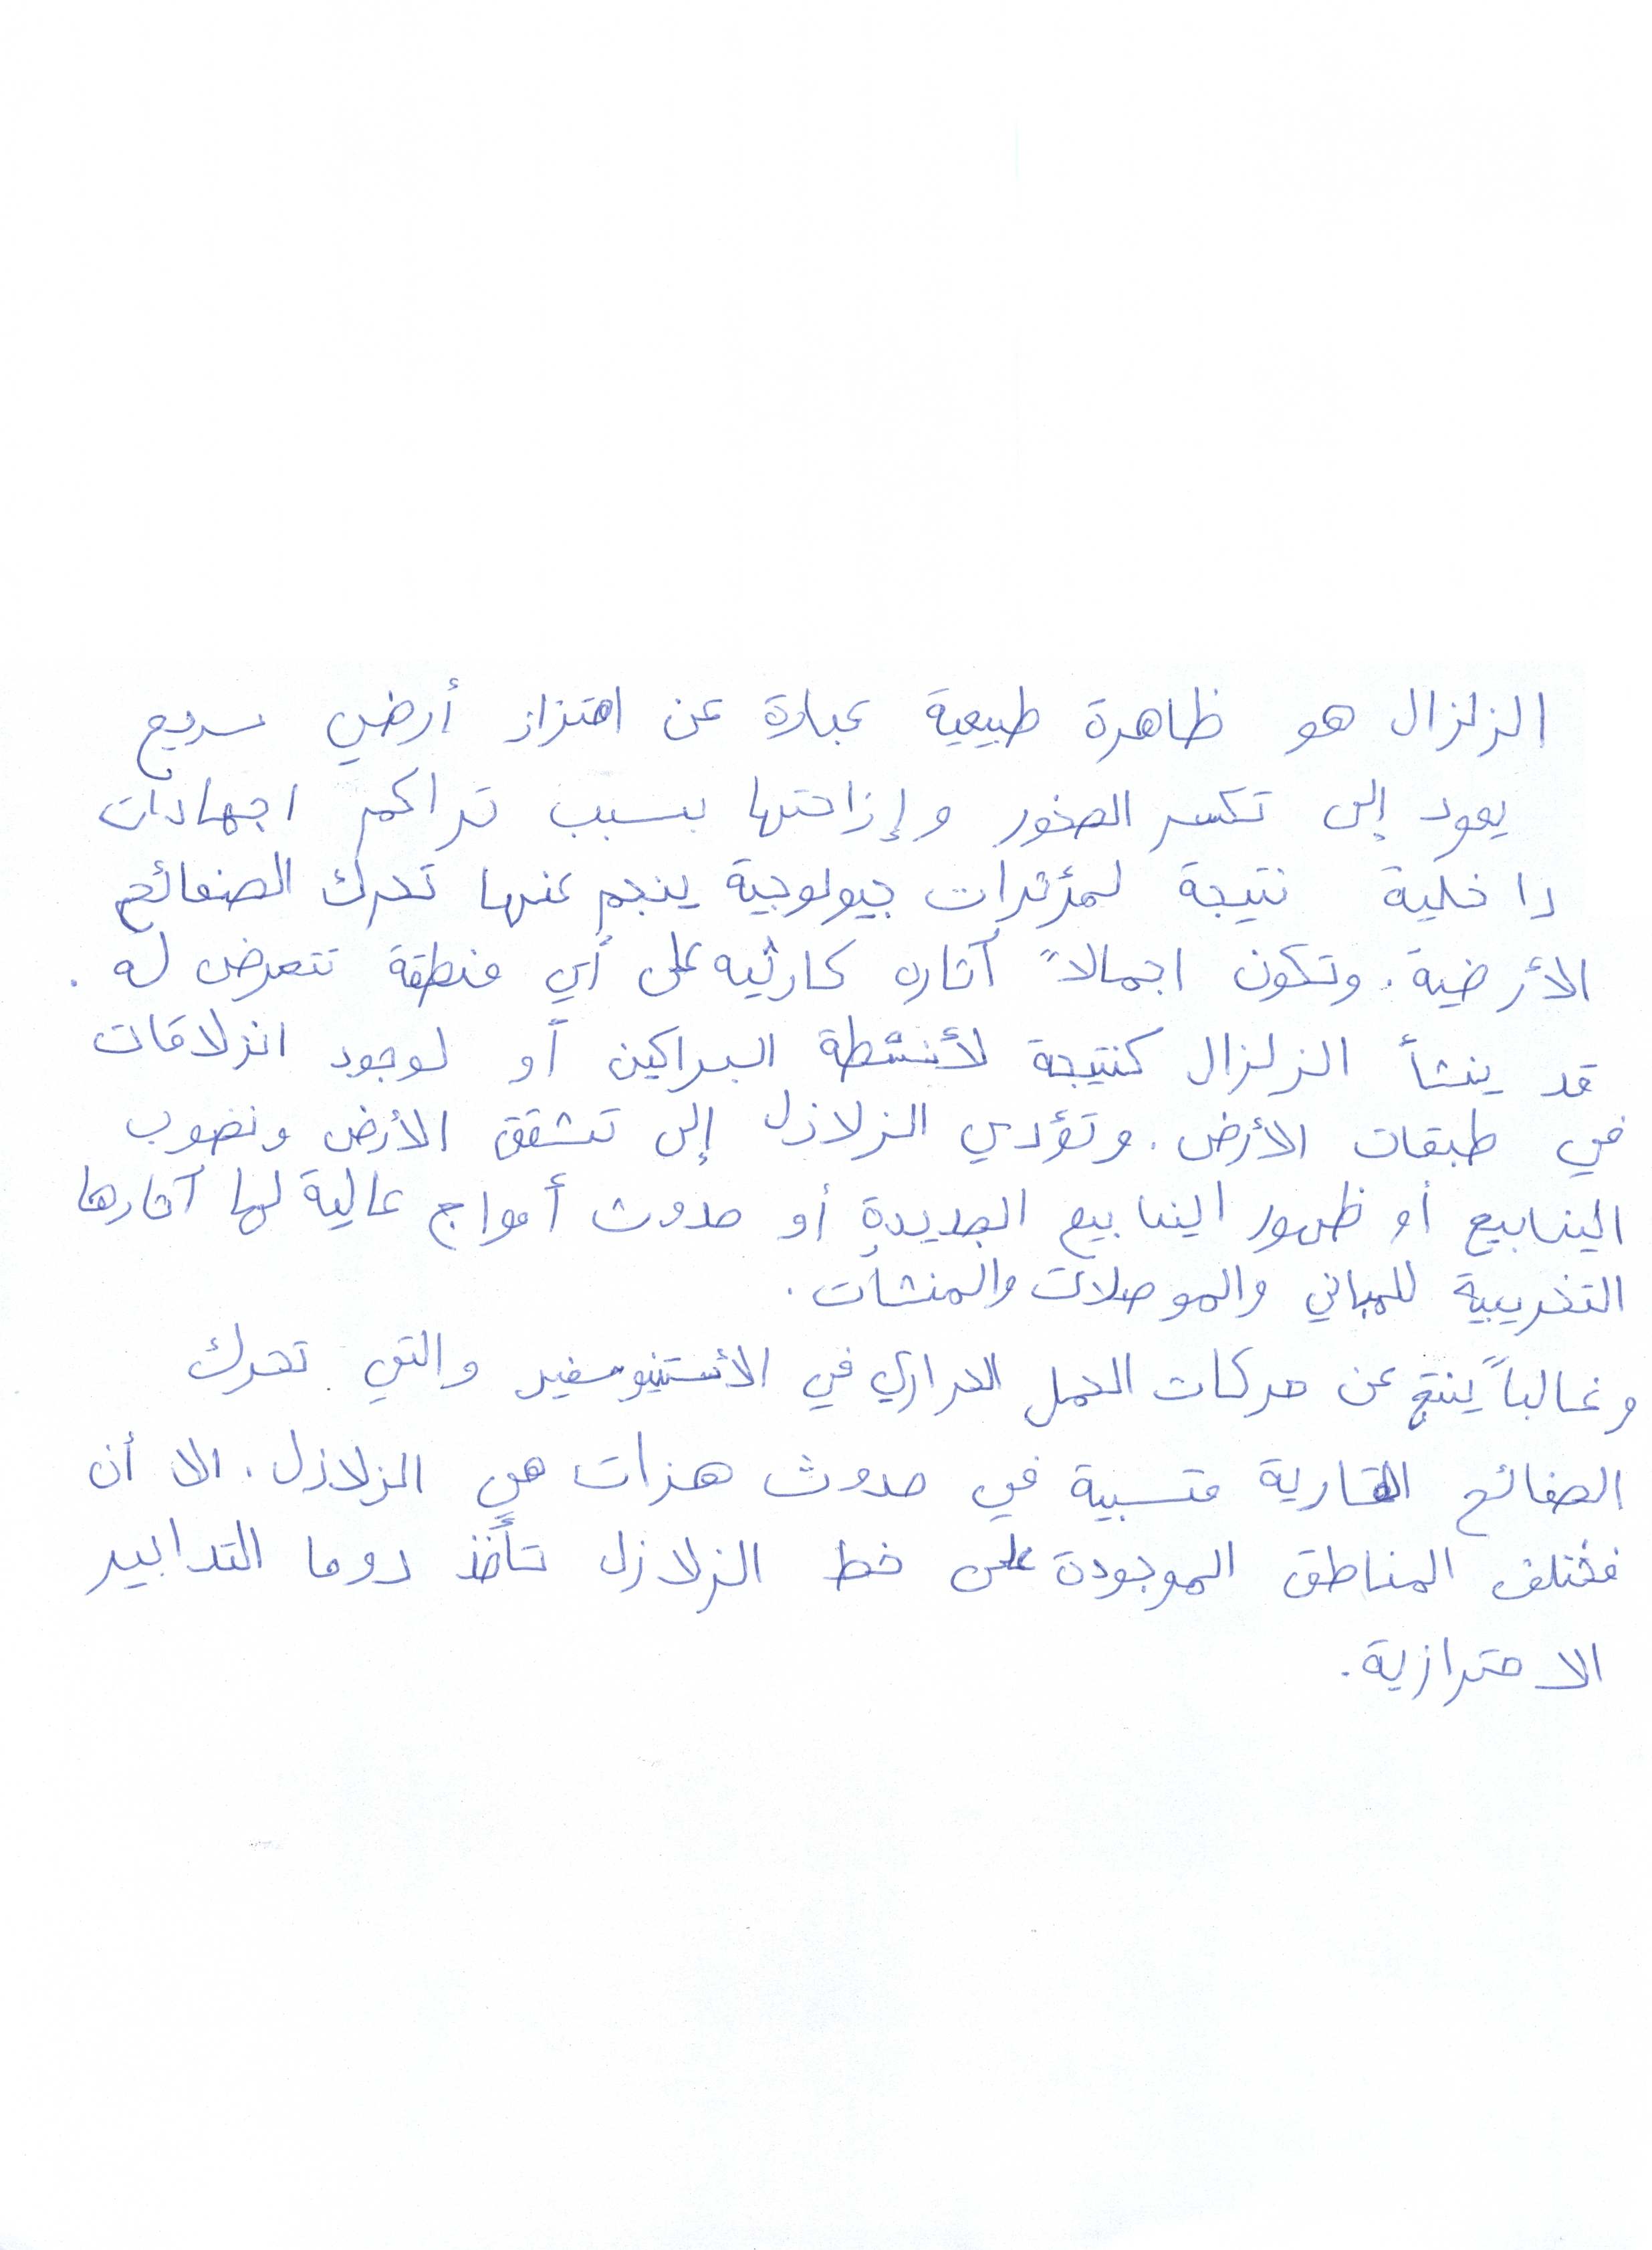 الزلزال هو ظاهرة طبيعية عبارة عن اهتزاز أرضي سريع
يعود إلى تكسر الصخور وإزاحتها بسبب تراكم اجهادات
داخلية نتيجة لمؤثرات جيولوجية ينجم عنها تحرك الصفائح
الأرضية. وتكون اجمالاً آثاره كارثيه على أي منطقة تتعرض له.
قد ينشأ الزلزال كنتيجة لأنشطة البراكين أو لوجود انزلاقات
في طبقات الأرض. وتؤدي الزلازل إلى تشقق الأرض ونضوب
الينابيع أو ظهور الينابيع الجديدة أو حدوث أمواج عالية لها آثارها
التخريبية للمباني والموصلات والمنشآت.
وغالباً ينتج عن حركات الحمل الحراري في الأستنيوسفير والتي تحرك
الصفائح القارية متسببة في حدوث هزات هي الزلازل. الا أن
مختلف المناطق الموجودة على خط الزلازل تأخذ دوما التدابير
الاحترازية.